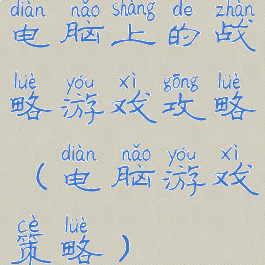 diàn nǎo shàng de zhàn
电脑上的战
lüè yóu xì gōng lüè
略游戏攻略
diàn nǎo yóu xì
(电脑游戏
cè lüè
策略)